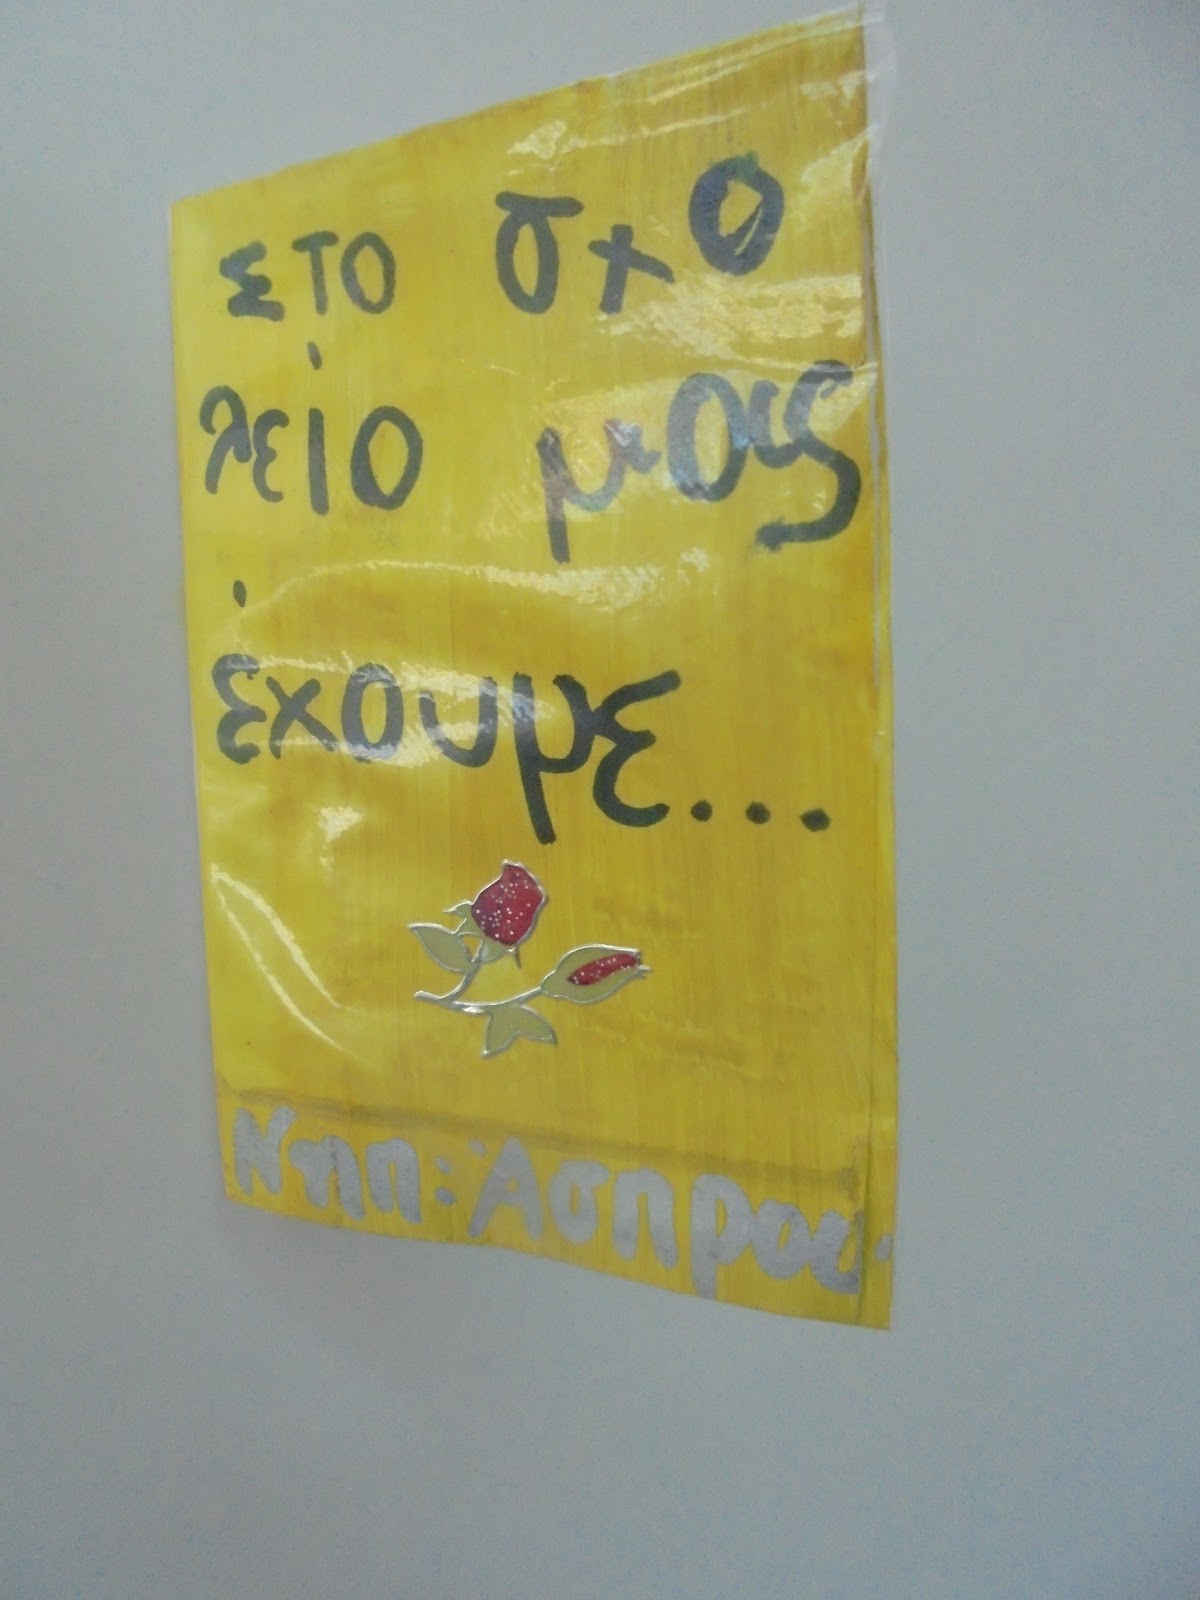 Στο σχο
λείο μας
έχουμε...
Νηπ: Άσπρου.